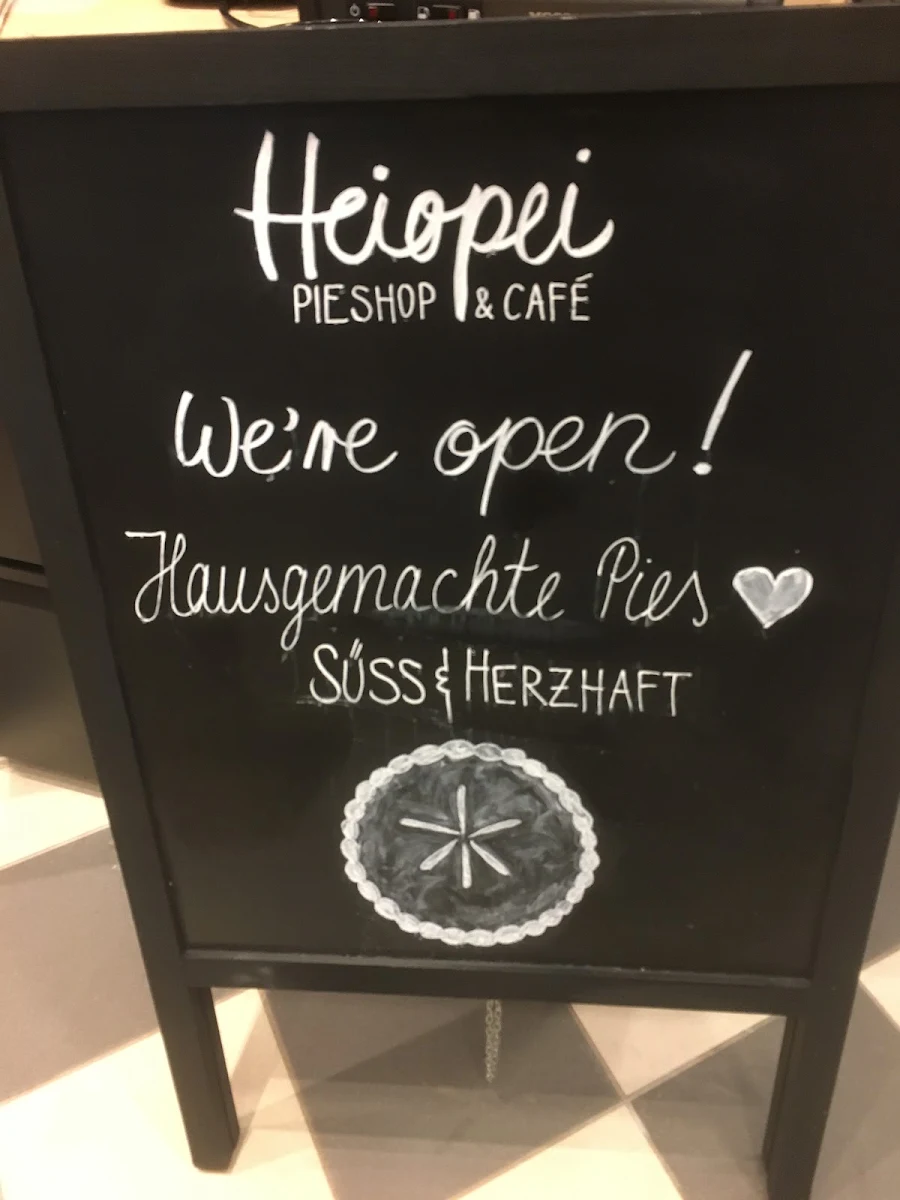 Heiopei
PIESHOP & CAFÉ
We're open!
Hausgemachte Pies
SÜSS & HERZHAFT